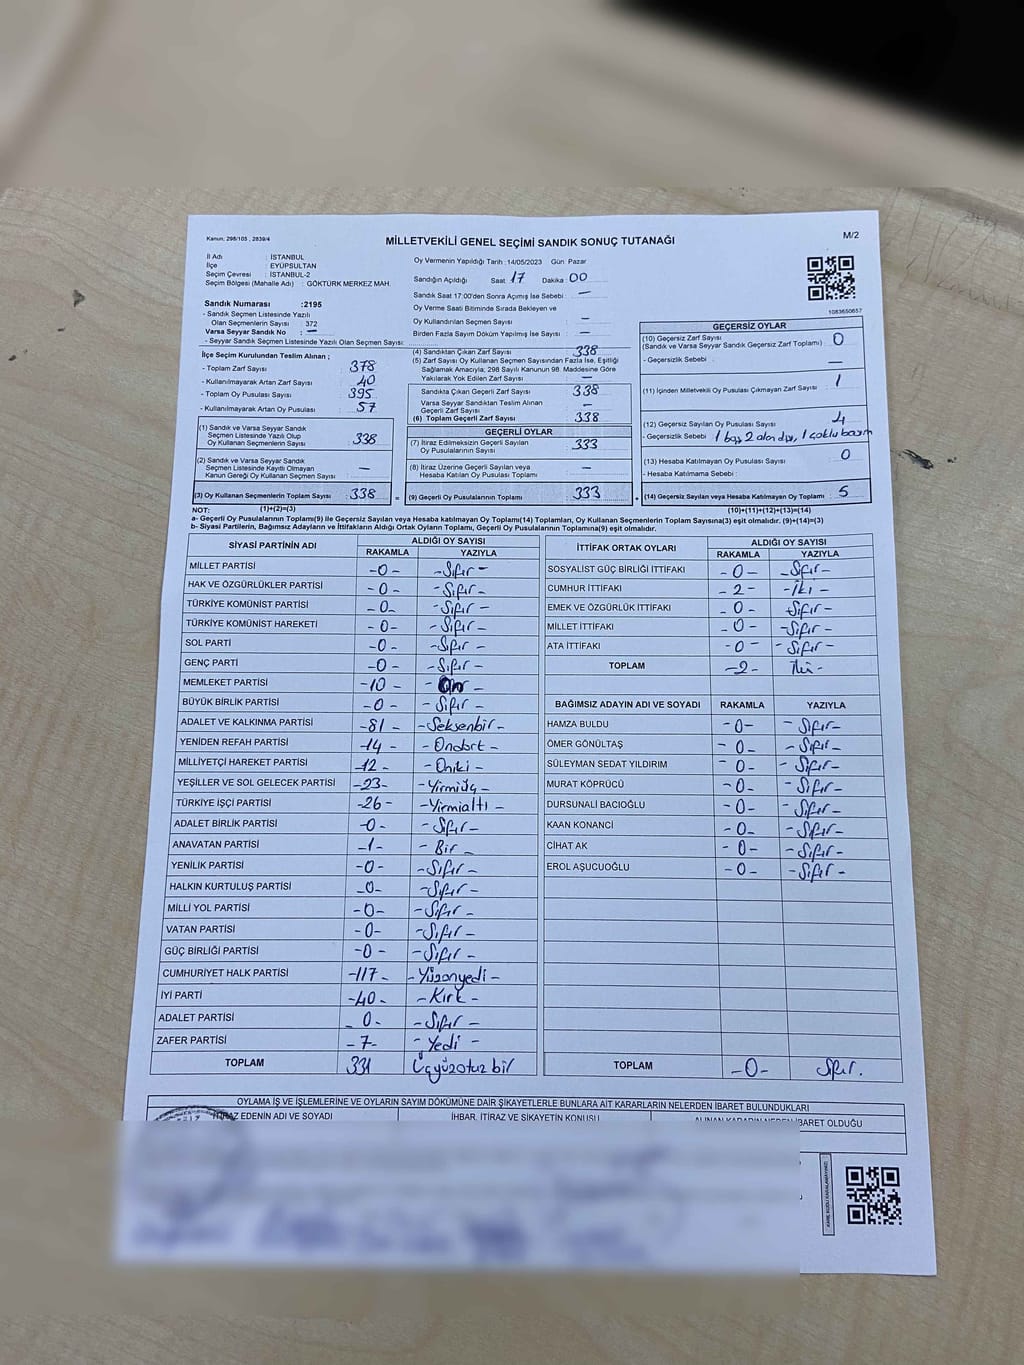 Kanun, 298/105 , 2839/4
MİLLETVEKİLİ GENEL SEÇİMİ SANDIK SONUÇ TUTANAĞI
M/2
İl Adı : İSTANBUL
İlçe : EYÜPSULTAN
Seçim Çevresi : İSTANBUL-2
Seçim Bölgesi (Mahalle Adı) : GÖKTÜRK MERKEZ MAH.
Sandık Numarası :2195
- Sandık Seçmen Listesinde Yazılı
Olan Seçmenlerin Sayısı : 372
Varsa Seyyar Sandık No : —
- Seyyar Sandık Seçmen Listesinde Yazılı Olan Seçmen Sayısı:
İlçe Seçim Kurulundan Teslim Alınan ;
- Toplam Zarf Sayısı : 378
- Kullanılmayarak Artan Zarf Sayısı : 40
- Toplam Oy Pusulası Sayısı : 395
- Kullanılmayarak Artan Oy Pusulası : 57
(1) Sandık ve Varsa Seyyar Sandık
Seçmen Listesinde Yazılı Olup
Oy Kullanan Seçmenlerin Sayısı : 338
(2) Sandık ve Varsa Seyyar Sandık
Seçmen Listesinde Kayıtlı Olmayan
Kanun Gereği Oy Kullanan Seçmen Sayısı : —
(3) Oy Kullanan Seçmenlerin Toplam Sayısı : 338 =
Oy Vermenin Yapıldığı Tarih :14/05/2023 Gün Pazar
Sandığın Açıldığı Saat 17 Dakika 00
Sandık Saat 17:00'den Sonra Açılmış İse Sebebi : —
Oy Verme Saati Bitiminde Sırada Bekleyen ve
Oy Kullandırılan Seçmen Sayısı : —
Birden Fazla Sayım Döküm Yapılmış İse Sayısı : —
(4) Sandıktan Çıkan Zarf Sayısı : 338
(5) Zarf Sayısı Oy Kullanan Seçmen Sayısından Fazla İse, Eşitliği
Sağlamak Amacıyla; 298 Sayılı Kanunun 98. Maddesine Göre
Yakılarak Yok Edilen Zarf Sayısı : —
Sandıkta Çıkan Geçerli Zarf Sayısı : 338
Varsa Seyyar Sandıktan Teslim Alınan
Geçerli Zarf Sayısı : —
(6) Toplam Geçerli Zarf Sayısı : 338
GEÇERLİ OYLAR
(7) İtiraz Edilmeksizin Geçerli Sayılan
Oy Pusulalarının Sayısı : 333
(8) İtiraz Üzerine Geçerli Sayılan veya
Hesaba Katılan Oy Pusulası Toplamı : —
(9) Geçerli Oy Pusulalarının Toplamı : 333 +
1083650857
GEÇERSİZ OYLAR
(10) Geçersiz Zarf Sayısı
(Sandık ve Varsa Seyyar Sandık Geçersiz Zarf Toplamı) : 0
- Geçersizlik Sebebi : —
(11) İçinden Milletvekili Oy Pusulası Çıkmayan Zarf Sayısı : 1
(12) Geçersiz Sayılan Oy Pusulası Sayısı : 4
- Geçersizlik Sebebi : 1 boş, 2 alan dışı, 1 çoklu basım
(13) Hesaba Katılmayan Oy Pusulası Sayısı : 0
- Hesaba Katılmama Sebebi :
(14) Geçersiz Sayılan veya Hesaba Katılmayan Oy Toplamı : 5
NOT: (1)+(2)=(3) (10)+(11)+(12)+(13)=(14)
a- Geçerli Oy Pusulalarının Toplamı(9) ile Geçersiz Sayılan veya Hesaba katılmayan Oy Toplamı(14) Toplamları, Oy Kullanan Seçmenlerin Toplam Sayısına(3) eşit olmalıdır. (9)+(14)=(3)
b- Siyasi Partilerin, Bağımsız Adayların ve İttifakların Aldığı Ortak Oyların Toplamı, Geçerli Oy Pusulalarının Toplamına(9) eşit olmalıdır.
SİYASİ PARTİNİN ADI ALDIĞI OY SAYISI
RAKAMLA YAZIYLA
MİLLET PARTİSİ -0- -Sıfır-
HAK VE ÖZGÜRLÜKLER PARTİSİ -0- -Sıfır-
TÜRKİYE KOMÜNİST PARTİSİ -0- -Sıfır-
TÜRKİYE KOMÜNİST HAREKETİ -0- -Sıfır-
SOL PARTİ -0- -Sıfır-
GENÇ PARTİ -0- -Sıfır-
MEMLEKET PARTİSİ -10- -On-
BÜYÜK BİRLİK PARTİSİ -0- -Sıfır-
ADALET VE KALKINMA PARTİSİ -81- -Seksenbir-
YENİDEN REFAH PARTİSİ -14- -Ondört-
MİLLİYETÇİ HAREKET PARTİSİ -12- -Oniki-
YEŞİLLER VE SOL GELECEK PARTİSİ -23- -Yirmiüç-
TÜRKİYE İŞÇİ PARTİSİ -26- -Yirmialtı-
ADALET BİRLİK PARTİSİ -0- -Sıfır-
ANAVATAN PARTİSİ -1- -Bir-
YENİLİK PARTİSİ -0- -Sıfır-
HALKIN KURTULUŞ PARTİSİ -0- -Sıfır-
MİLLİ YOL PARTİSİ -0- -Sıfır-
VATAN PARTİSİ -0- -Sıfır-
GÜÇ BİRLİĞİ PARTİSİ -0- -Sıfır-
CUMHURİYET HALK PARTİSİ -117- -Yüzonyedi-
İYİ PARTİ -40- -Kırk-
ADALET PARTİSİ -0- -Sıfır-
ZAFER PARTİSİ -7- -Yedi-
TOPLAM 331 Üçyüzotuz bir
İTTİFAK ORTAK OYLARI ALDIĞI OY SAYISI
RAKAMLA YAZIYLA
SOSYALİST GÜÇ BİRLİĞİ İTTİFAKI -0- -Sıfır-
CUMHUR İTTİFAKI -2- -İki-
EMEK VE ÖZGÜRLÜK İTTİFAKI -0- -Sıfır-
MİLLET İTTİFAKI -0- -Sıfır-
ATA İTTİFAKI -0- -Sıfır-
TOPLAM -2- İki-
BAĞIMSIZ ADAYIN ADI VE SOYADI RAKAMLA YAZIYLA
HAMZA BULDU -0- -Sıfır-
ÖMER GÖNÜLTAŞ -0- -Sıfır-
SÜLEYMAN SEDAT YILDIRIM -0- -Sıfır-
MURAT KÖPRÜCÜ -0- -Sıfır-
DURSUNALİ BACIOĞLU -0- -Sıfır-
KAAN KONANCİ -0- -Sıfır-
CİHAT AK -0- -Sıfır-
EROL AŞUCUOĞLU -0- -Sıfır-
TOPLAM -0- Sıfır.
OYLAMA İŞ VE İŞLEMLERİNE VE OYLARIN SAYIM DÖKÜMÜNE DAİR ŞİKAYETLERLE BUNLARA AİT KARARLARIN NELERDEN İBARET BULUNDUKLARI
İTİRAZ EDENİN ADI VE SOYADI İHBAR, İTİRAZ VE ŞİKAYETİN KONUSU ALINAN KARARIN NEDEN İBARET OLDUĞU